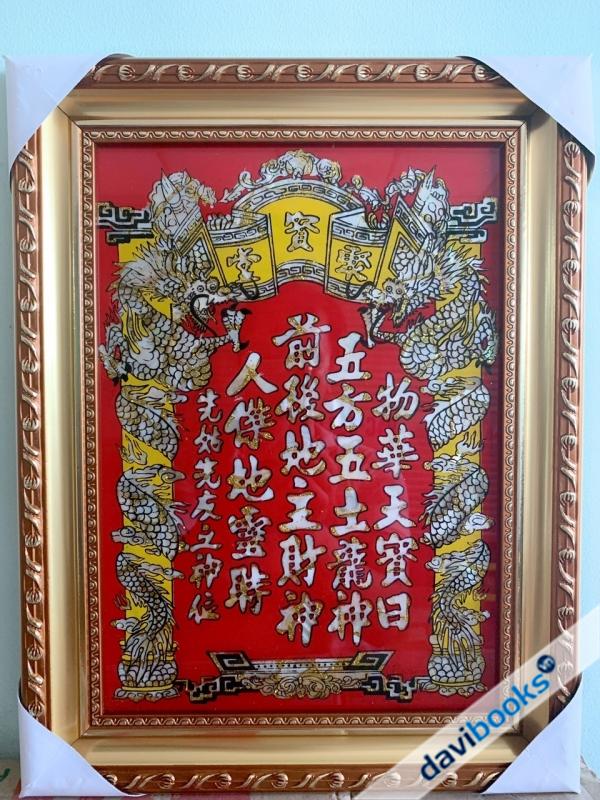 聚寶堂
物華天寶日
五方五土龍神
前後地主財神
人傑地靈時
先始先友之神位
davibooks
.vn